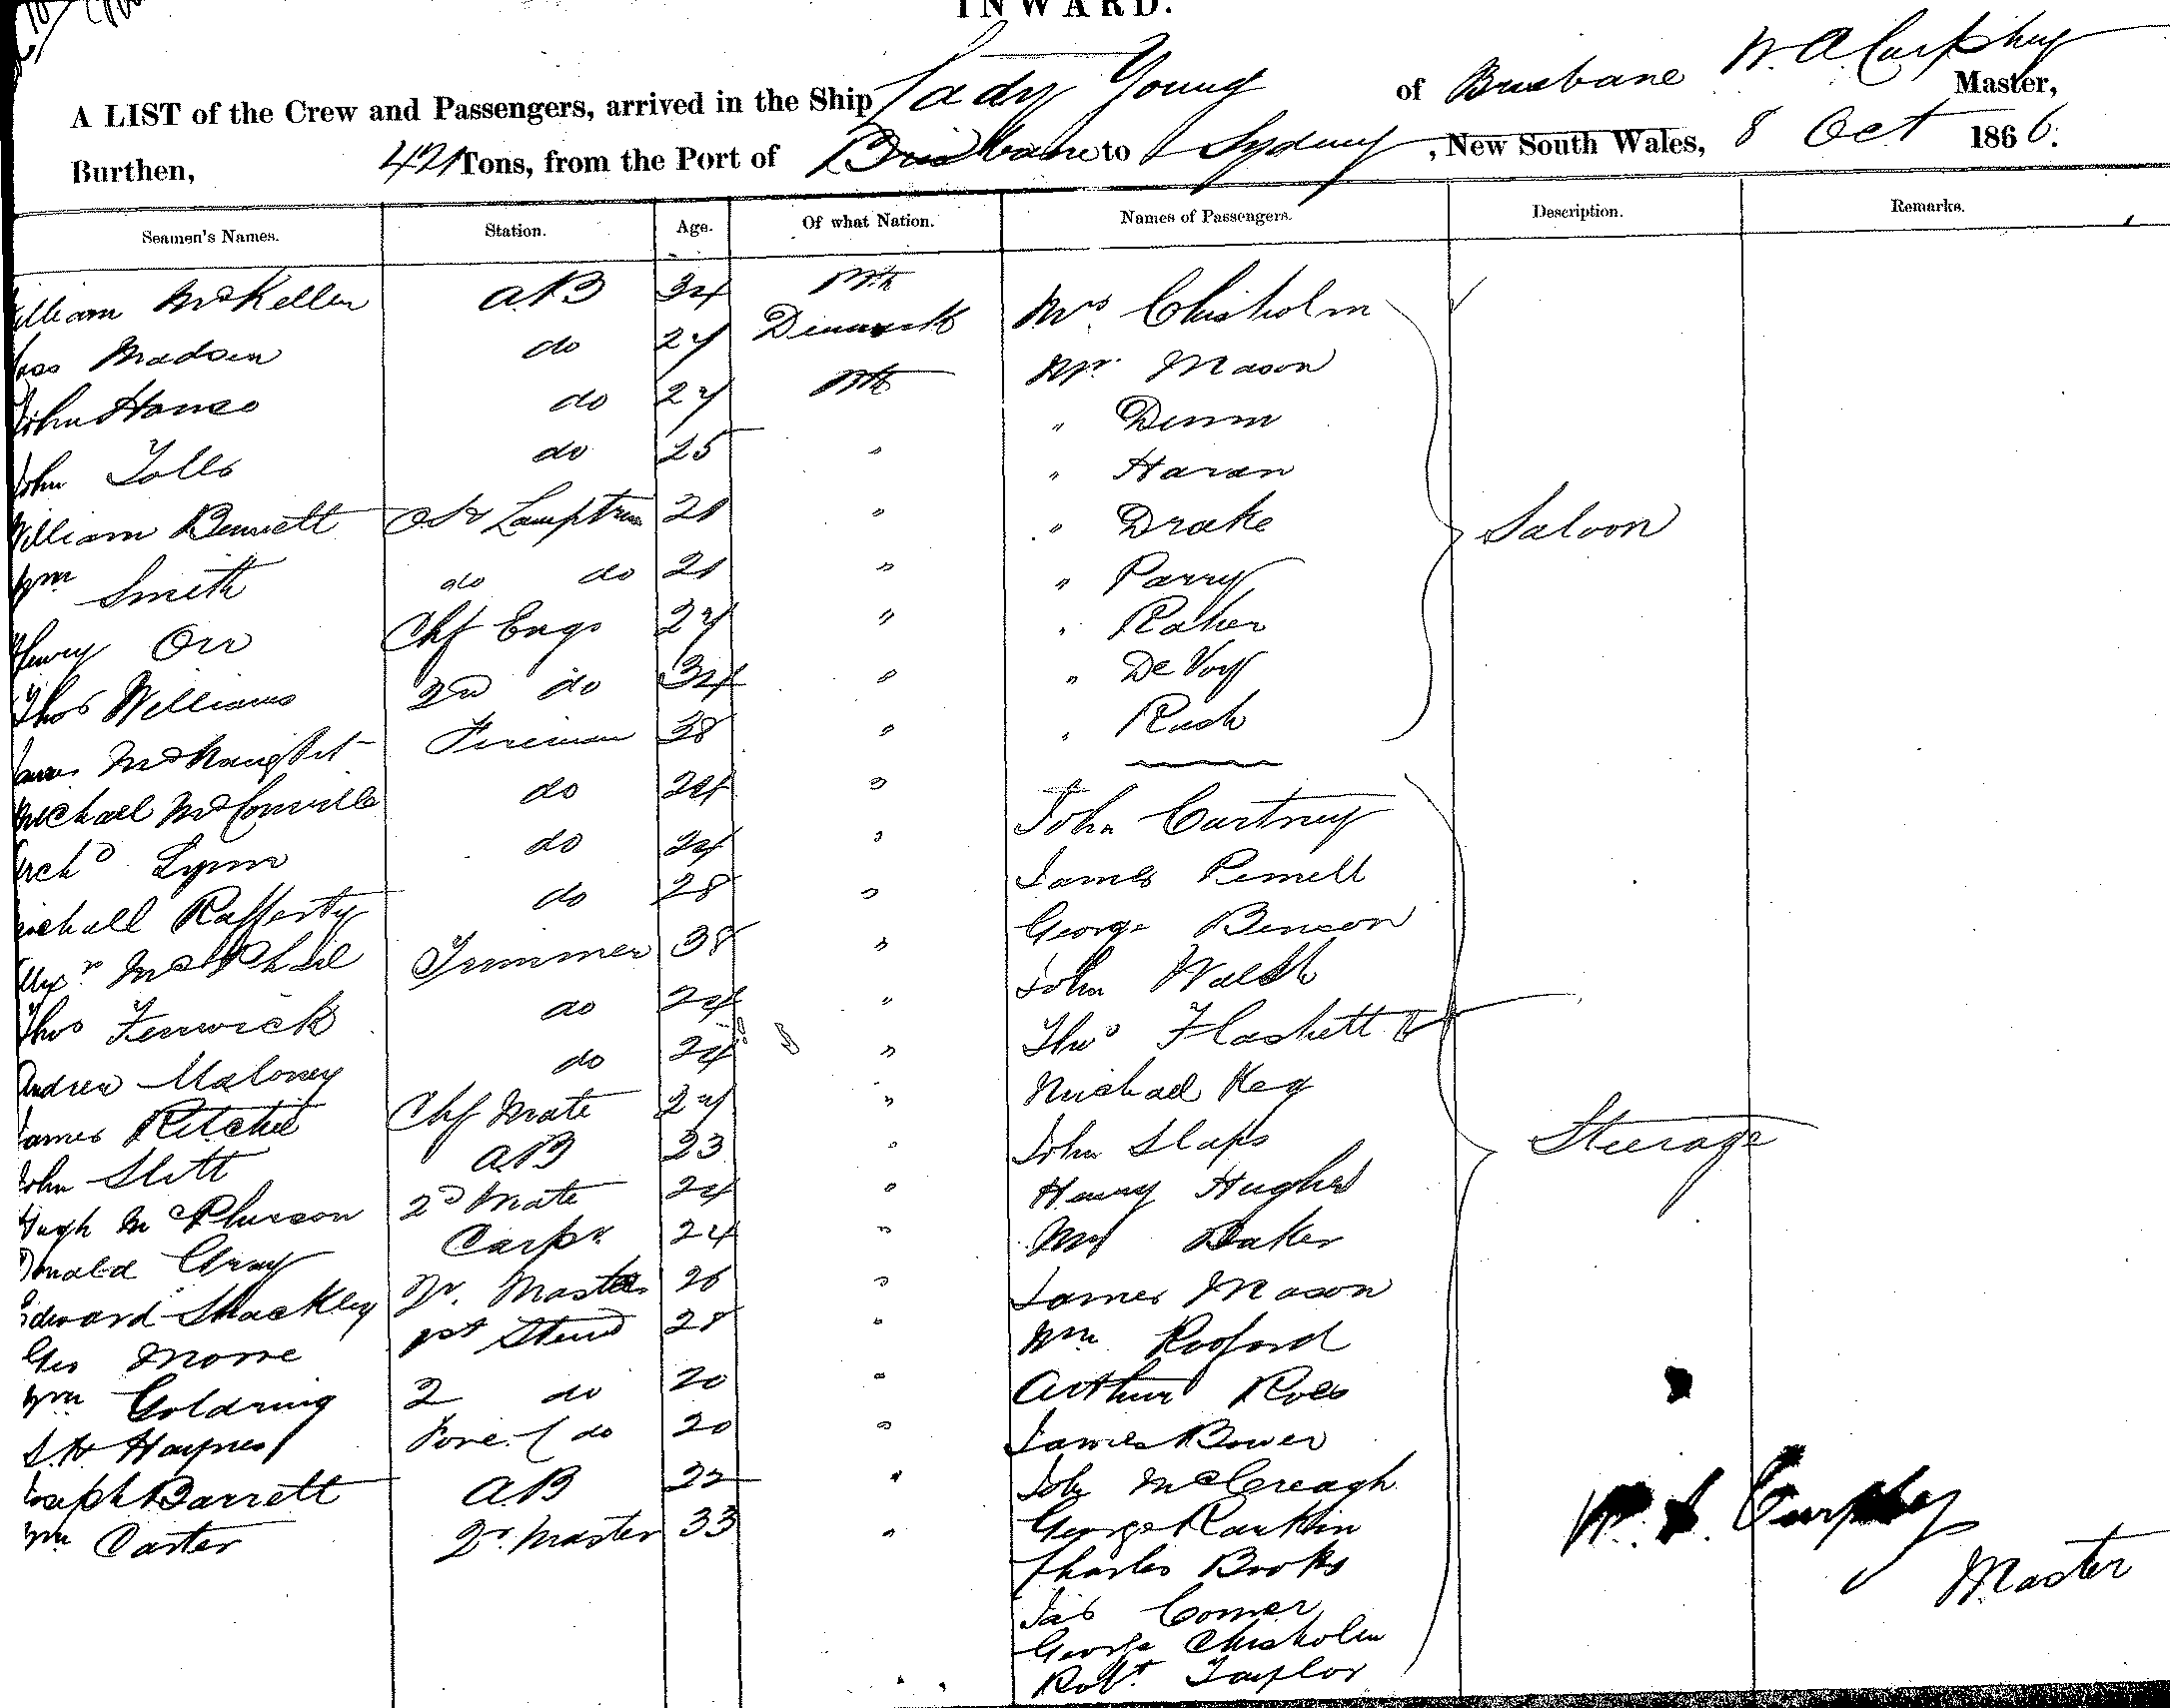 INWARD.
A LIST of the Crew and Passengers, arrived in the Ship Lady Young of Brisbane W. A Curphey Master,
Burthen, 421 Tons, from the Port of Brisbane to Sydney, New South Wales, 8 Oct 1866.
Seamen's Names. Station. Age. Of what Nation. Names of Passengers. Description. Remarks.
William McKellen AB 34 Mrs Chisholm
Madsen do 27 Denmark Mr Mason
John do 27 " Dunn
John Tolls do 25 " " Haran
William Bennett OS & Lamptrim 21 " " Drake Saloon
Wm Smith do do 21 " " Parry
Henry Orr Chf Engr 27 " " Raker
Thos Williams 2nd do 34 " " De Voy
James McNaught Fireman 38 " " Rush
Michael McConville do 24 " John Curtney
Archd Lynn do 24 " James Pemell
Michall Rafferty do 28 " George Benson
Alexr McPhail Trimmer 38 " John Walsh
Thos Fenwick do 24 " Thos Flaskett
Andrew Maloney do 24 " Michael Keg
James Ritchie Chf Mate 27 " John Slaps Steerage
John Slitt AB 23 " Henry Hughes
Hugh McPherson 2d Mate 24 " Baker
Donald Gray Carpr 24 " James Mason
Edward Shackley Qr. Master 26 " Wm Rooford
Geo Morre 1st Stewd 28 " Arthur Roes
Wm Goldring 2 do 20 " James Bower
Haynes Fore do 20 " John McCreagh
Joseph Barrett AB 22 " George Rankin
Wm Carter Qr. Master 33 " Charles Books
Jas Comer
George Chisholm
Robt. Taylor
Curphey
Master